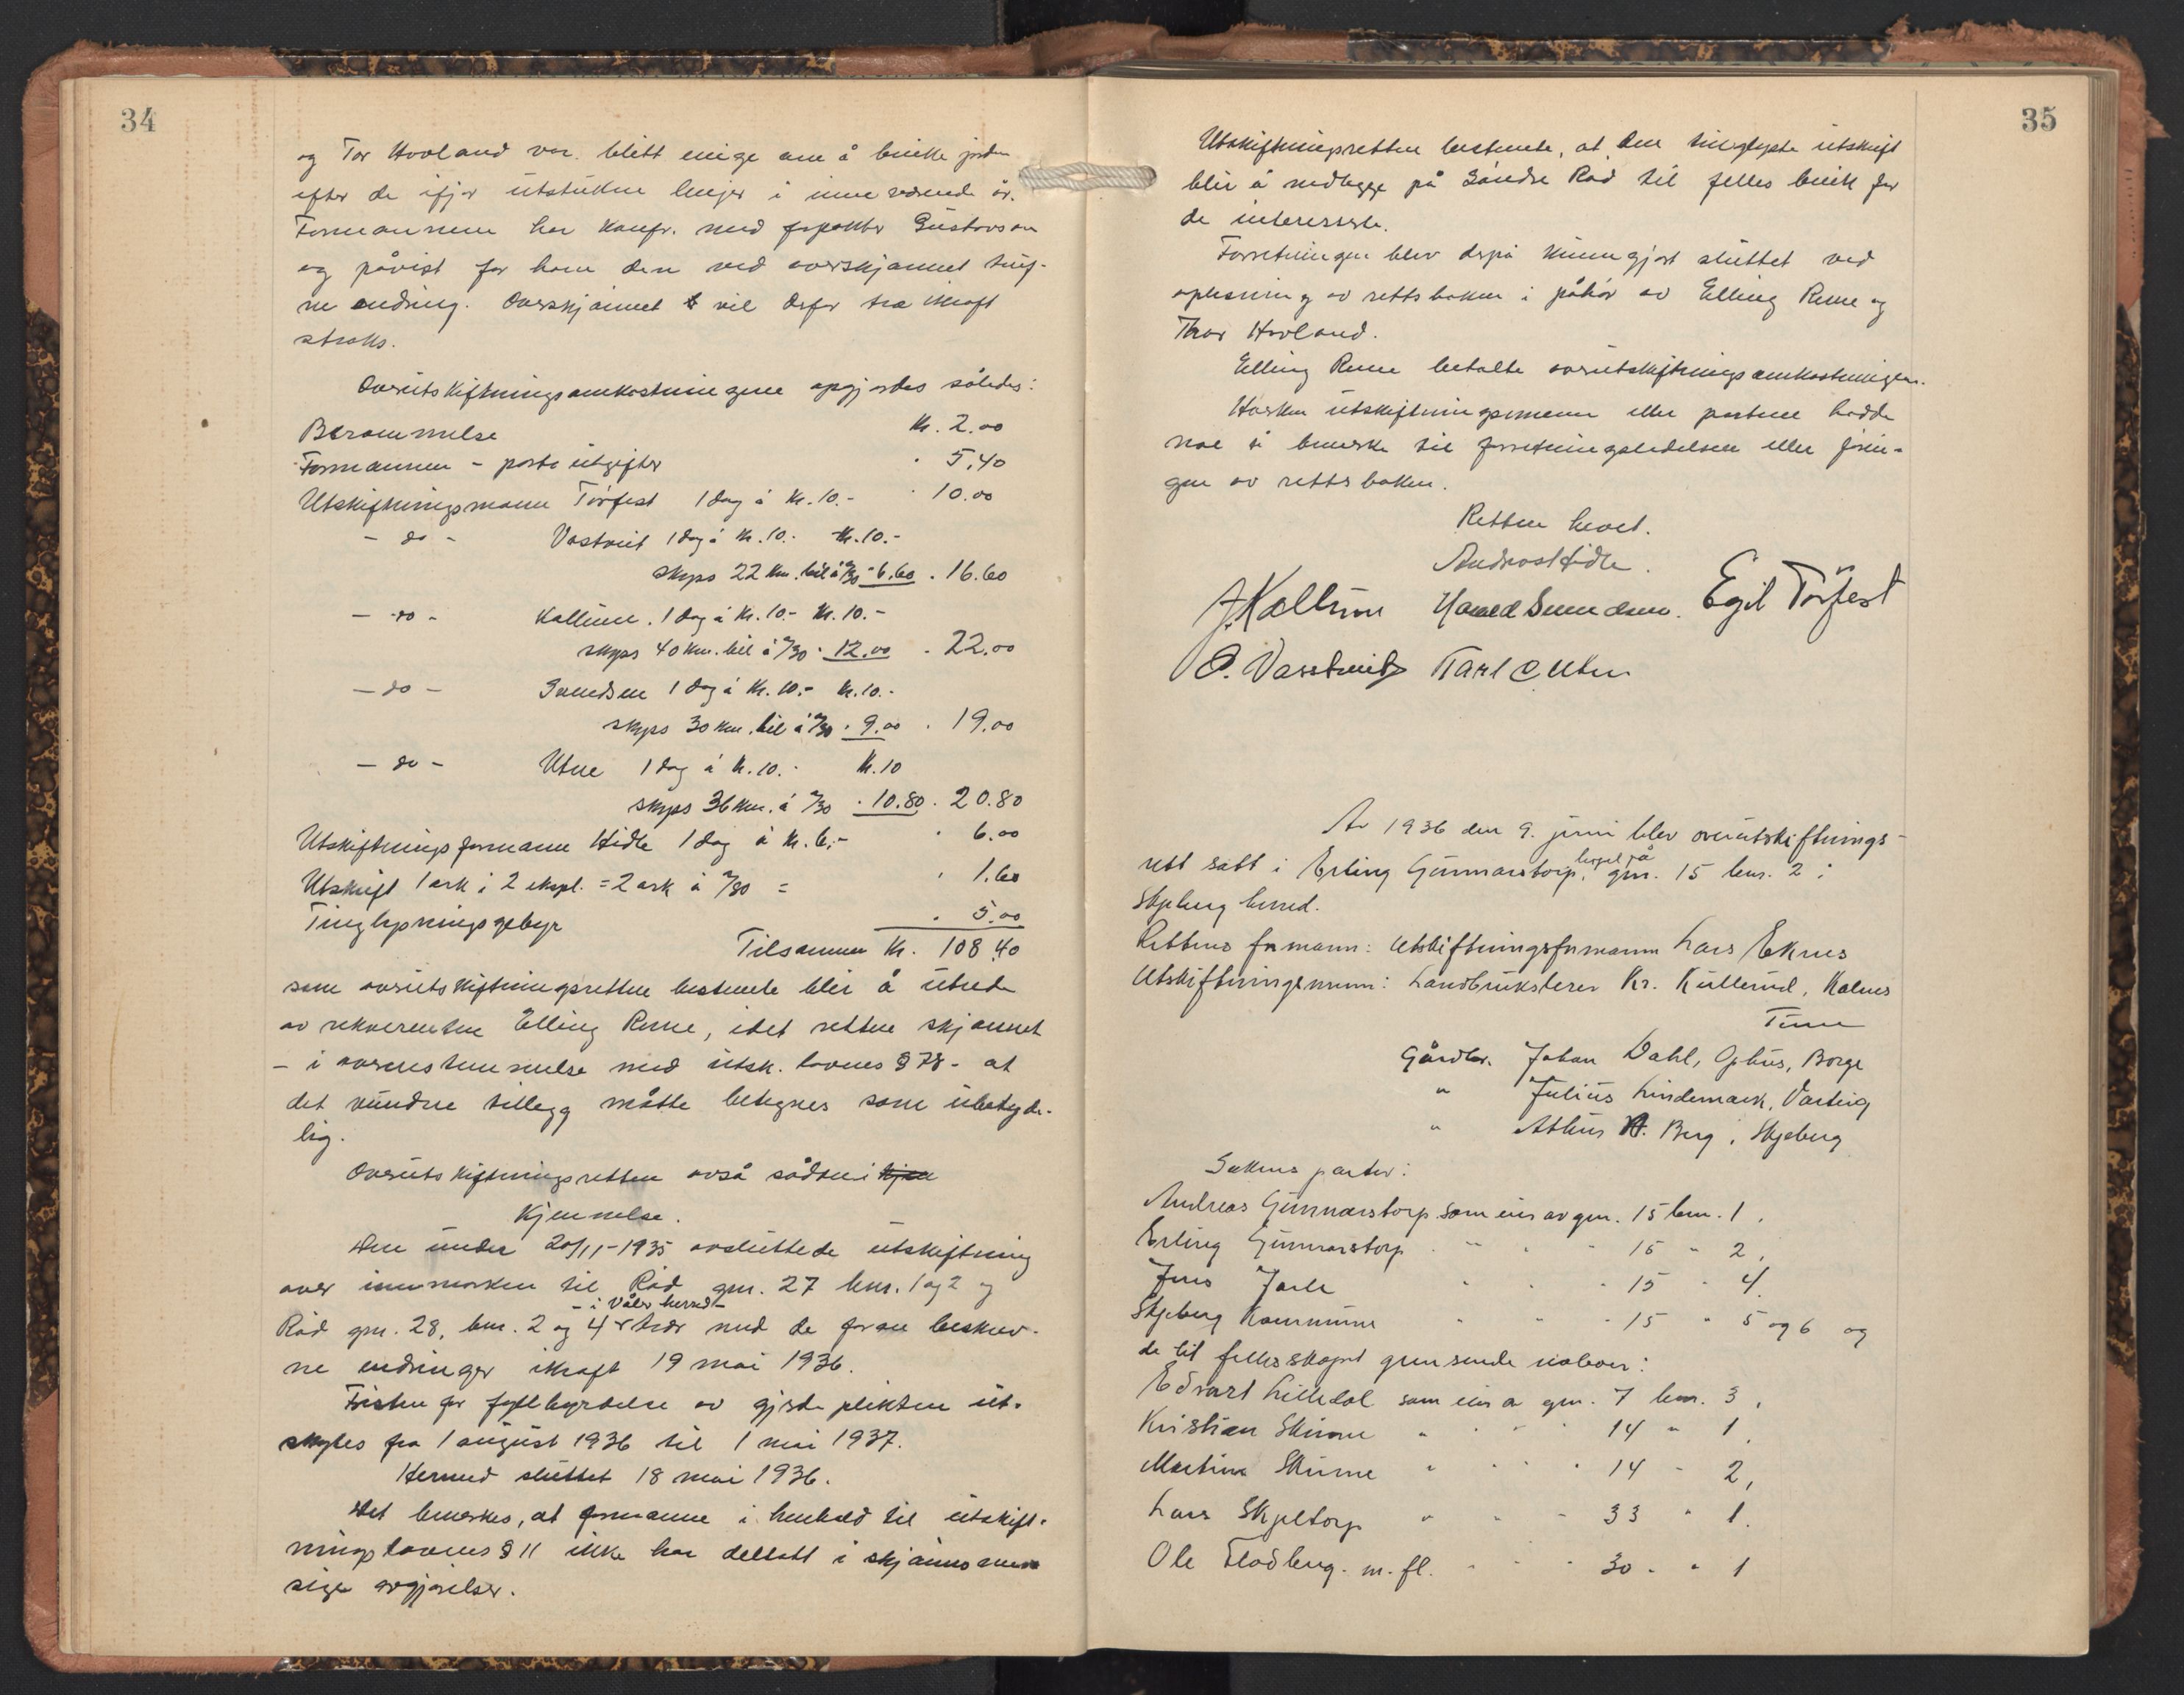 34
og Tor Hovland var blitt enige om å bruke jorden
efter de ifjor utstukne linjer i inneværende år.
Formannen har konf. med forpakter Gustavson
og påvist for ham den ved overskjønnet trufne
ne endring. Overskjønnet vil derfor tra ikraft
straks.
Overutskiftningsomkostningene opgjordes således:
Berammelse kr. 2.00
Formannen - porto utgifter " 5,40
Utskiftningsmann Torfest 1 dag á kr. 10.- " 10.00
- do - Vastveit 1 dag á kr. 10.- kr. 10.-
skyss 22 km. bil á 0/30 " 6.60 . 16.60
- do - Kollum. 1 dag á kr. 10.- kr. 10.-
skyss 40 km. bil á 0/30 " 12.00 . 22.00
- do - Svendsen 1 dag á kr. 10.- kr. 10.-
skyss 30 km. bil á 0/30 . 9.00 . 19.00
- do - Utne 1 dag á kr. 10.- kr. 10
skyss 36 km. á 0/30 . 10.80 . 20.80
Utskiftningsformann Hidle 1 dag á kr. 6.- " 6.00
Utskrift 1 ark i 2 ekspl. = 2 ark á 0/80 = " 1.60
Tinglysningsgebyr . 5.00
Tilsammen kr. 108.40
som overutskiftningsretten bestemte blir å utrede
av rekvirenten Elling Rume, idet retten skjønnet
- i overenstemmelse med utsk. lovens § 78 - at
det vundne tillegg måtte betegnes som ubetyde-
lig.
Overutskiftningsretten avsa sådan kjen
Kjennelse.
Den under 20/11-1935 avsluttede utskiftning
over innmarken til Råd gnr. 27 bnr. 1 og 2 og
- i Våler herred -
Råd gnr. 28, bnr. 2 og 4 trær med de foran beskrev-
ne endringer ikraft 19 mai 1936.
Fristen for fyllbyrdelse av gjerdeplikten ut-
skytes fra 1 august 1936 til 1 mai 1937.
Hermed sluttet 18 mai 1936.
Det bemerkes, at formannen i henhold til utskift-
ningslovens § 11 ikke har deltatt i skjønnsmes
sige avgjørelser.
35
Utskiftningsretten bestemte, at den tinglyste utskrift
blir å nedlegge på Søndre Råd til felles bruk for
de interesserte.
Forretningen blev derpå kunngjort sluttet ved
oplesning av rettsboken i påhør av Elling Rume og
Thor Hovland.
Elling Rume betalte overutskiftningsomkostningene.
Hverken utskiftningsmenn eller partene hadde
noe å bemerke til forretningsledelsen eller førin-
gen av rettsboken.
Retten hevet.
Andreas Hidle.
J. Kollum Harald Svendsen. Egil Torfest
O. Vasstveit Karl O Utne
År 1936 den 9. juni blev overutskiftnings-
rett satt i Erling Gunnarstorp, bopel på gnr. 15 bnr. 2 i
Skjeberg herred.
Rettens formann: Utskiftningsformann Lars Eknes
Utskiftningsmenn: Landbrukslærer Kr. Kullerud, Kalnes
Tune
Gårdbr. Johan Dahl, Ophus, Borge
" Julius Lindemark, Varteig
" Athur A. Berg, Skjeberg
Sakens parter:
Andreas Gunnarstorp som eier av gnr. 15 bnr. 1,
Erling Gunnarstorp " " " 15 " 2,
Jens Jarle " " " 15 " 4
Skjeberg Kommune " " " 15 " 5 og 6 og
de til fellesskapet grensende naboer:
Edvart Lilledal som eier av gnr. 7 bnr. 3,
Kristian Skinne " " " 14 " 1,
Martine Skinne " " " 14 " 2,
Lars Skjeltorp " " " 33 " 1.
Ole Flodberg m. fl. " " " 30 " " 1